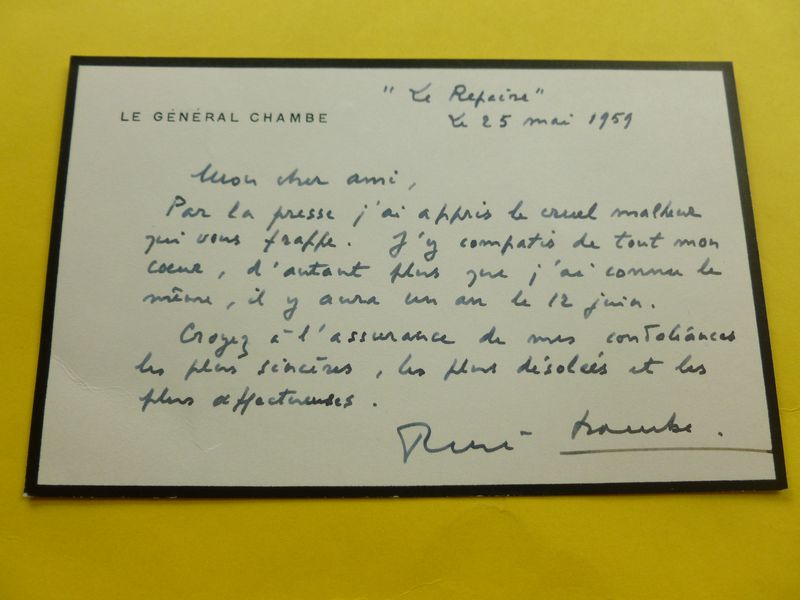 LE GÉNÉRAL CHAMBE
"Le Repaire"
Le 25 mai 1959
Mon cher ami,
Par la presse j'ai appris le cruel malheur
qui vous frappe. J'y compatis de tout mon
coeur, d'autant plus que j'ai connu le
même, il y aura un an le 12 juin.
Croyez à l'assurance de mes condoléances
les plus sincères, les plus désolées et les
plus affectueuses.
René Chambe.